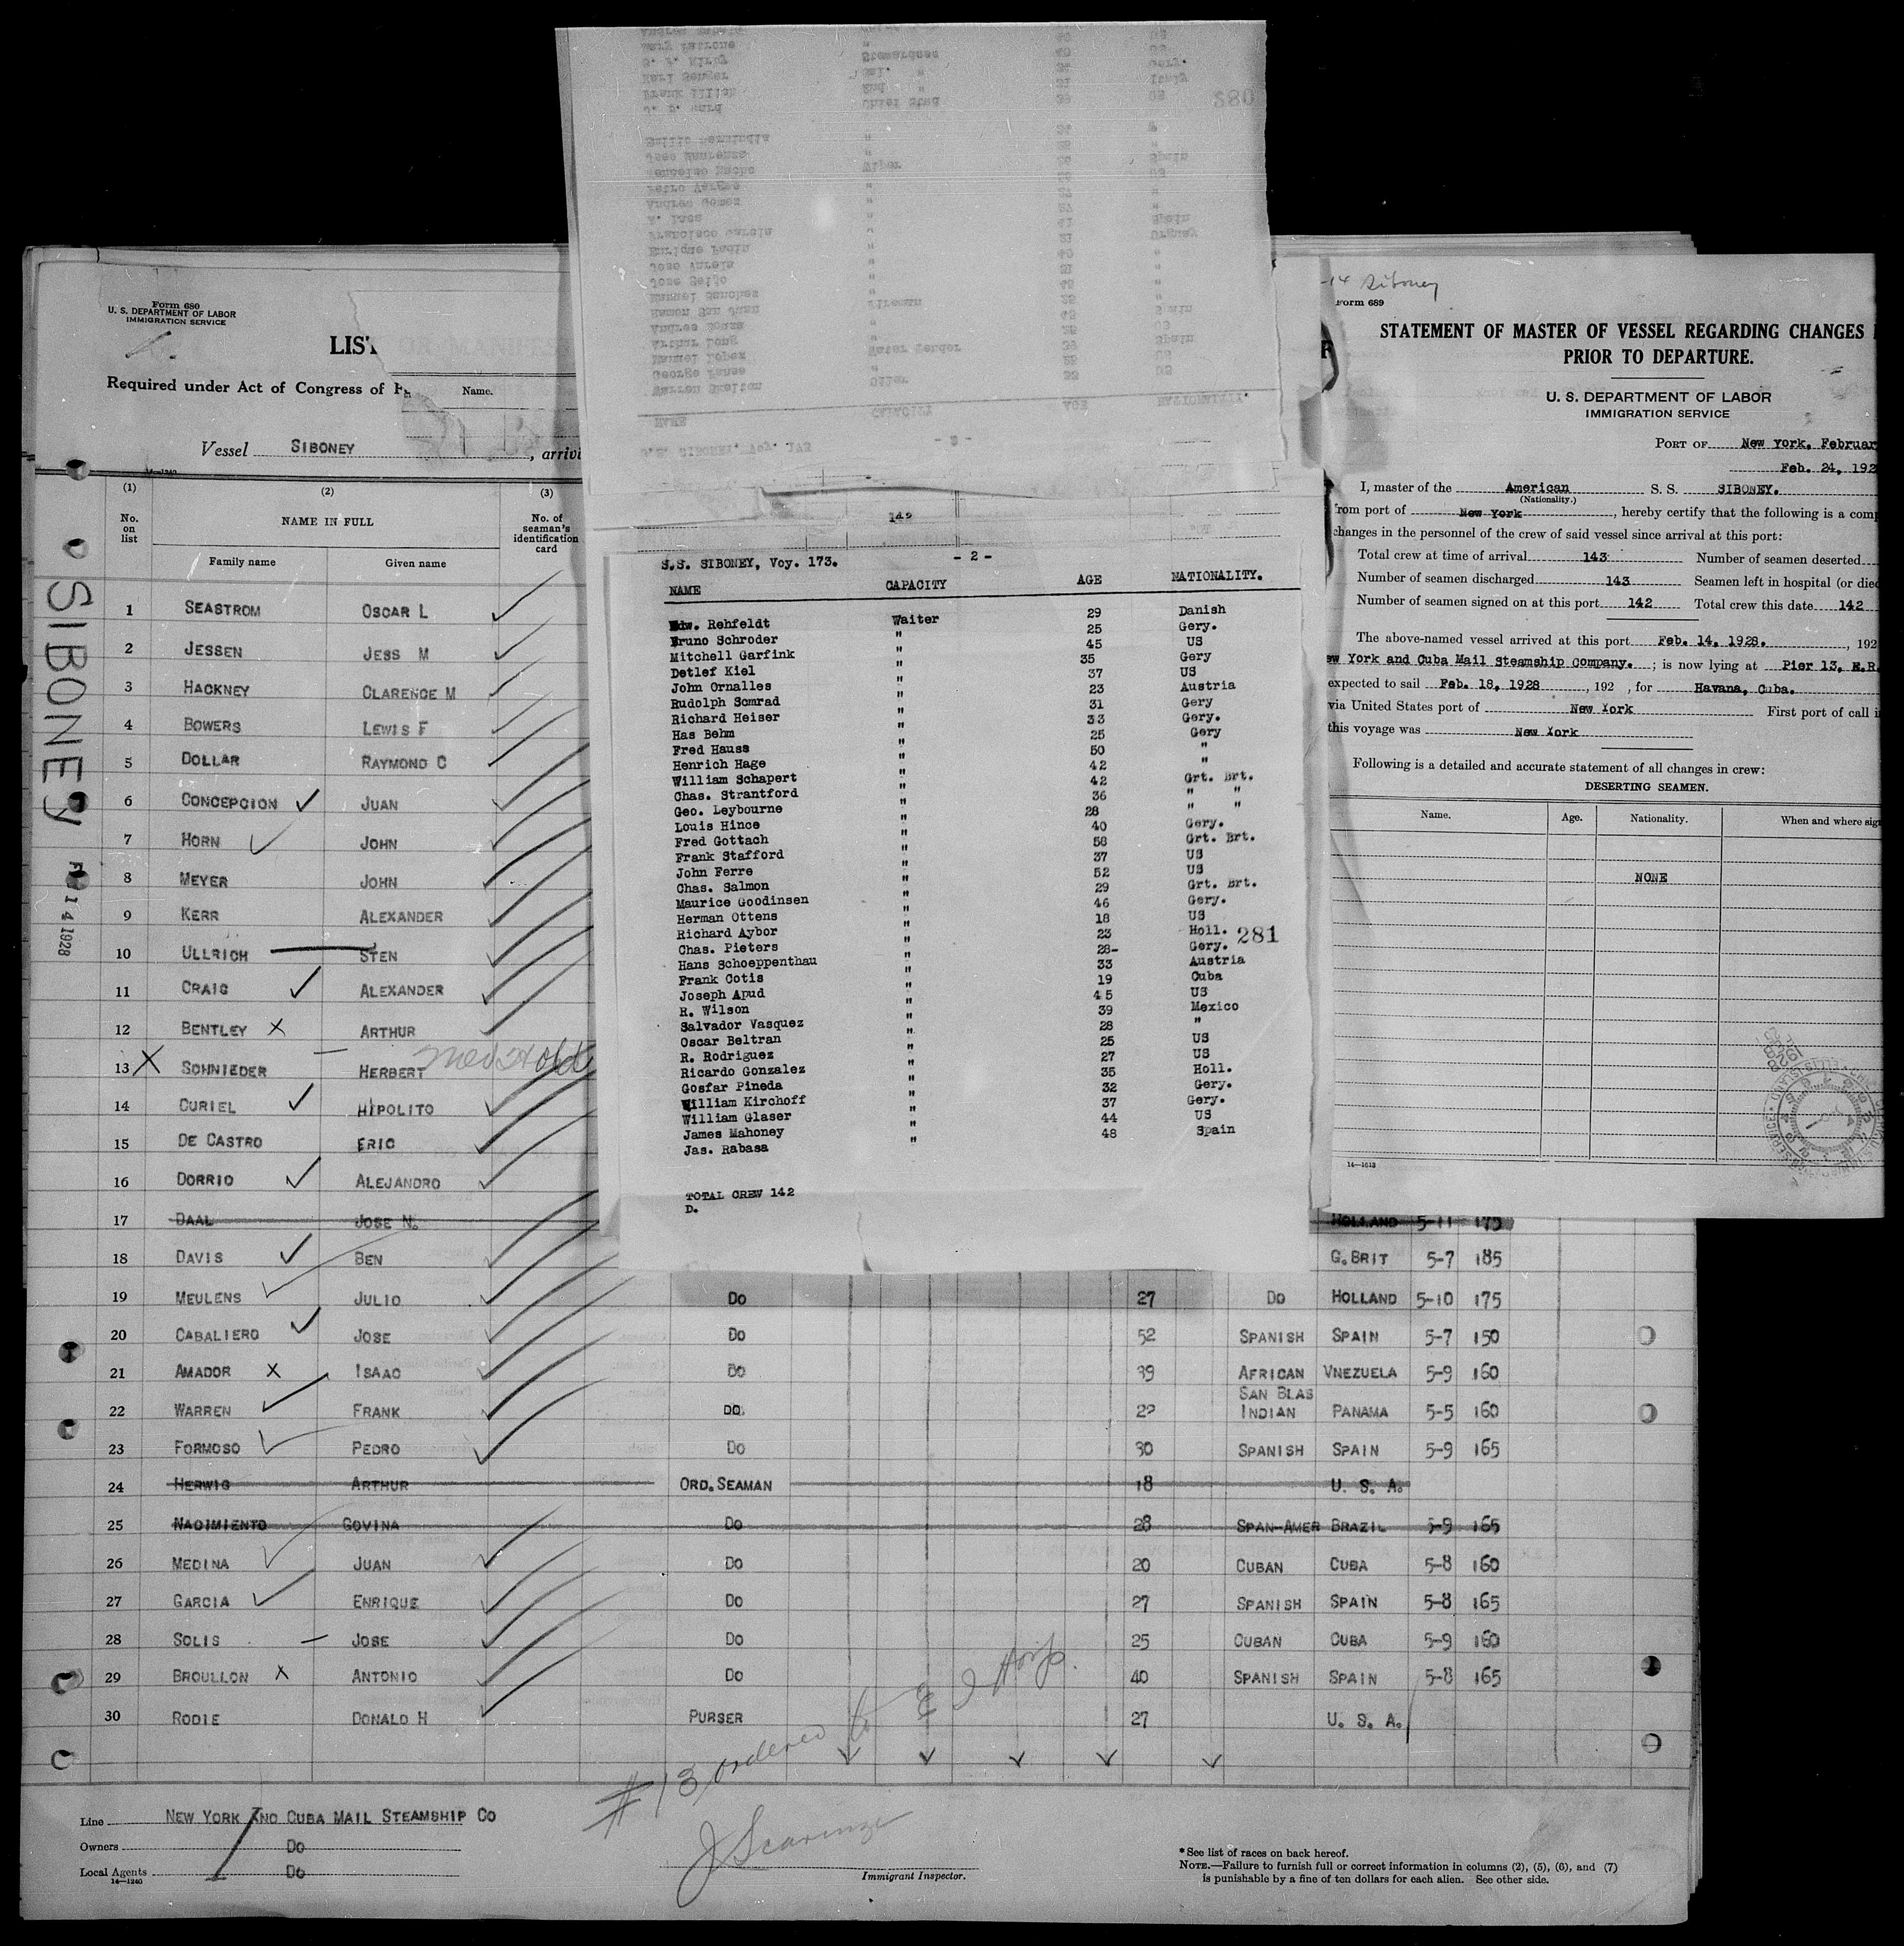 Form 680
U. S. DEPARTMENT OF LABOR
IMMIGRATION SERVICE
LIST
Required under Act of Congress of
Name.
Vessel SIBONEY, arrivi
14—1240
(1) (2) (3)
No. on list NAME IN FULL No. of seaman's identification card
Family name Given name
SIBONEY
14 1928
1 SEASTROM OSCAR L
2 JESSEN JESS M
3 HACKNEY CLARENCE M
4 BOWERS LEWIS F
5 DOLLAR RAYMOND C
6 CONCEPCION JUAN
7 HORN JOHN
8 MEYER JOHN
9 KERR ALEXANDER
10 ULLRICH STEN
11 CRAIG ALEXANDER
12 BENTLEY X ARTHUR
13 X SCHNIEDER HERBERT Med Hold
14 CURIEL HIPOLITO
15 DE CASTRO ERIC
16 DORRIO ALEJANDRO
17 DAAL JOSE N. HOLLAND 5-11 175
18 DAVIS BEN G. BRIT 5-7 185
19 MEULENS JULIO DO 27 DO HOLLAND 5-10 175
20 CABALIERO JOSE DO 52 SPANISH SPAIN 5-7 150
21 AMADOR X ISAAC DO 39 AFRICAN VNEZUELA 5-9 160
22 WARREN FRANK DO 22 SAN BLAS INDIAN PANAMA 5-5 160
23 FORMOSO PEDRO DO 30 SPANISH SPAIN 5-9 165
24 HERWIG ARTHUR ORD. SEAMAN 18 U. S. A.
25 NACIMIENTO GOVINA DO 28 SPAN-AMER BRAZIL 5-9 165
26 MEDINA JUAN DO 20 CUBAN CUBA 5-8 160
27 GARCIA ENRIQUE DO 27 SPANISH SPAIN 5-8 165
28 SOLIS JOSE DO 25 CUBAN CUBA 5-9 160
29 BROULLON X ANTONIO DO 40 SPANISH SPAIN 5-8 165
30 RODIE DONALD H PURSER 27 U. S. A.
#13 ordered to E I Hosp.
Line NEW YORK AND CUBA MAIL STEAMSHIP CO
Owners DO
Local Agents DO
14—1240
J Scarinzi
Immigrant Inspector.
* See list of races on back hereof.
NOTE.—Failure to furnish full or correct information in columns (2), (5), (6), and (7)
is punishable by a fine of ten dollars for each alien. See other side.
280
142
S.S. SIBONEY, Voy. 173. - 2 -
NAME CAPACITY AGE NATIONALITY.
Edw. Rehfeldt Waiter 29 Danish
Bruno Schroder " 25 Gery.
Mitchell Garfink " 45 US
Detlef Kiel " 35 Gery
John Ornalles " 37 US
Rudolph Somrad " 23 Austria
Richard Heiser " 31 Gery
Has Behm " 33 Gery.
Fred Hauss " 25 Gery
Henrich Hage " 50
William Schapert " 42 "
Chas. Strantford " 42 Grt. Brt.
Geo. Leybourne " 36 " "
Louis Hince " 28 " "
Fred Gottach " 40 Gery.
Frank Stafford " 58 Grt. Brt.
John Ferre " 37 US
Chas. Salmon " 52 US
Maurice Goodinsen " 29 Grt. Brt.
Herman Ottens " 46 Gery.
Richard Aybor " 18 US
Chas. Pieters " 23 Holl.
Hans Schoeppenthau " 28- Gery.
Frank Cotis " 33 Austria
Joseph Apud " 19 Cuba
R. Wilson " 45 US
Salvador Vasquez " 39 Mexico
Oscar Beltran " 28 "
R. Rodriguez " 25 US
Ricardo Gonzalez " 27 US
Gosfar Pineda " 35 Holl.
William Kirchoff " 32 Gery.
William Glaser " 37 Gery.
James Mahoney " 44 US
Jas. Rabasa " 48 Spain
281
TOTAL CREW 142
D.
-14 Siboney
Form 689
STATEMENT OF MASTER OF VESSEL REGARDING CHANGES
PRIOR TO DEPARTURE.
U. S. DEPARTMENT OF LABOR
IMMIGRATION SERVICE
PORT OF New York, Februar
Feb. 24, 192
I, master of the American S. S. SIBONEY.
(Nationality.)
from port of New York, hereby certify that the following is a comp
changes in the personnel of the crew of said vessel since arrival at this port:
Total crew at time of arrival 143 Number of seamen deserted
Number of seamen discharged 143 Seamen left in hospital (or died
Number of seamen signed on at this port 142 Total crew this date 142
The above-named vessel arrived at this port Feb. 14, 1928., 192
ew York and Cuba Mail Steamship Company.; is now lying at Pier 13, E.R.
expected to sail Feb. 18, 1928, 192 , for Havana, Cuba.
via United States port of New York First port of call i
this voyage was New York
Following is a detailed and accurate statement of all changes in crew:
DESERTING SEAMEN.
Name. Age. Nationality. When and where sig
NONE
14—1613